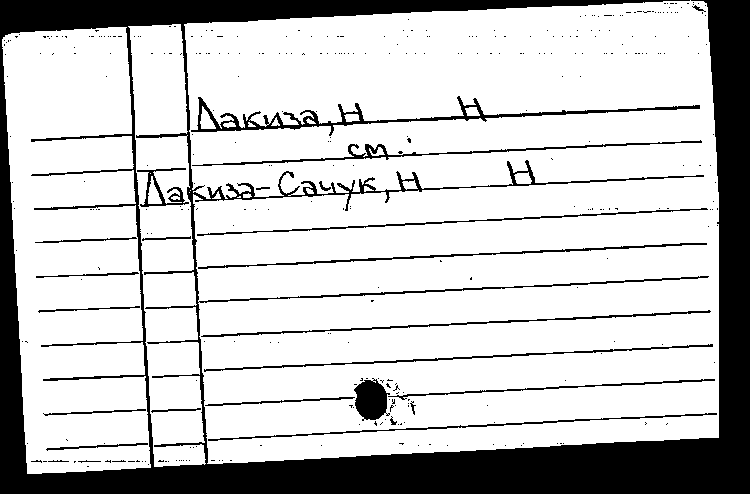 Лакиза, Н Н
см.:
Лакиза-Сачук, Н Н